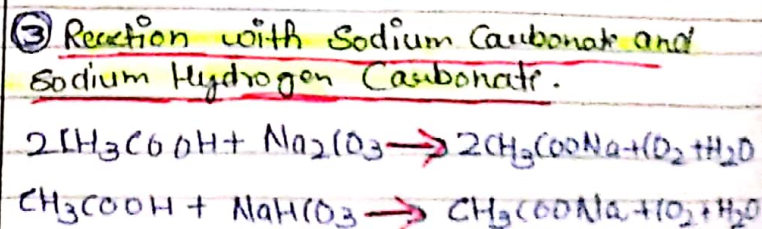 ③ Reaction with Sodium Carbonate and
Sodium Hydrogen Carbonate.
2CH3COOH + Na2CO3 → 2CH3COONa + CO2 + H2O
CH3COOH + NaHCO3 → CH3COONa + CO2 + H2O